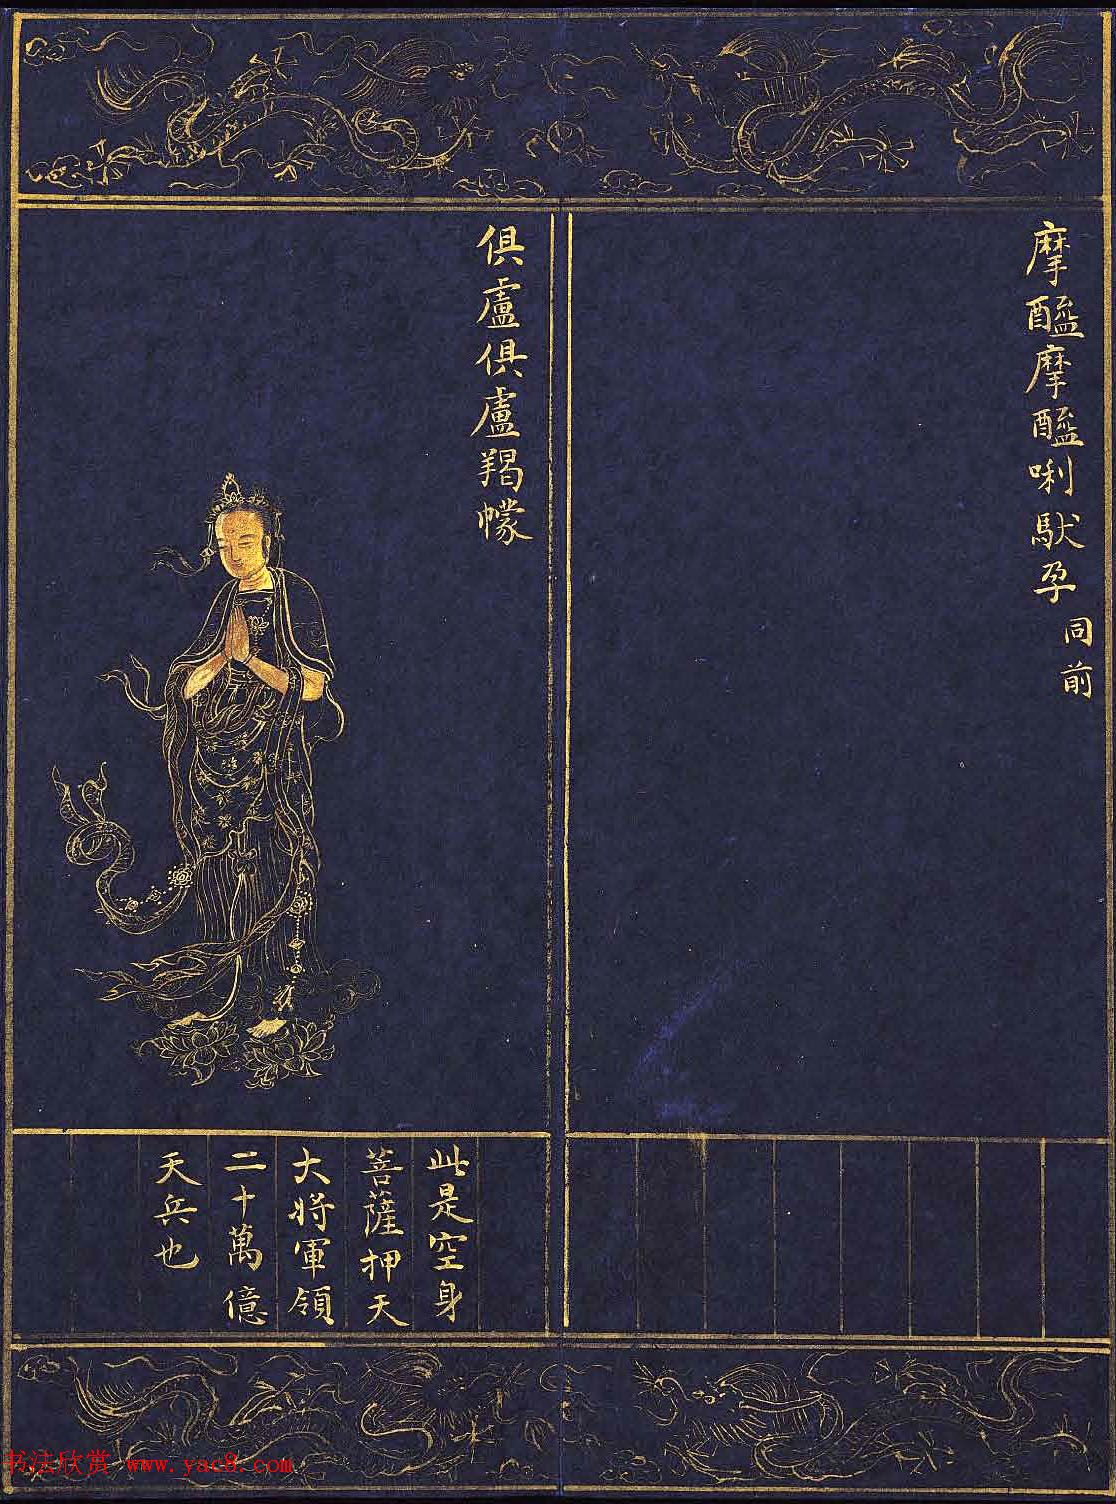 摩醯摩醯唎馱孕 同前
俱盧俱盧羯幪
此是空身
菩薩押天
大將軍領
二十萬億
天兵也
书法欣赏 www.yac8.com